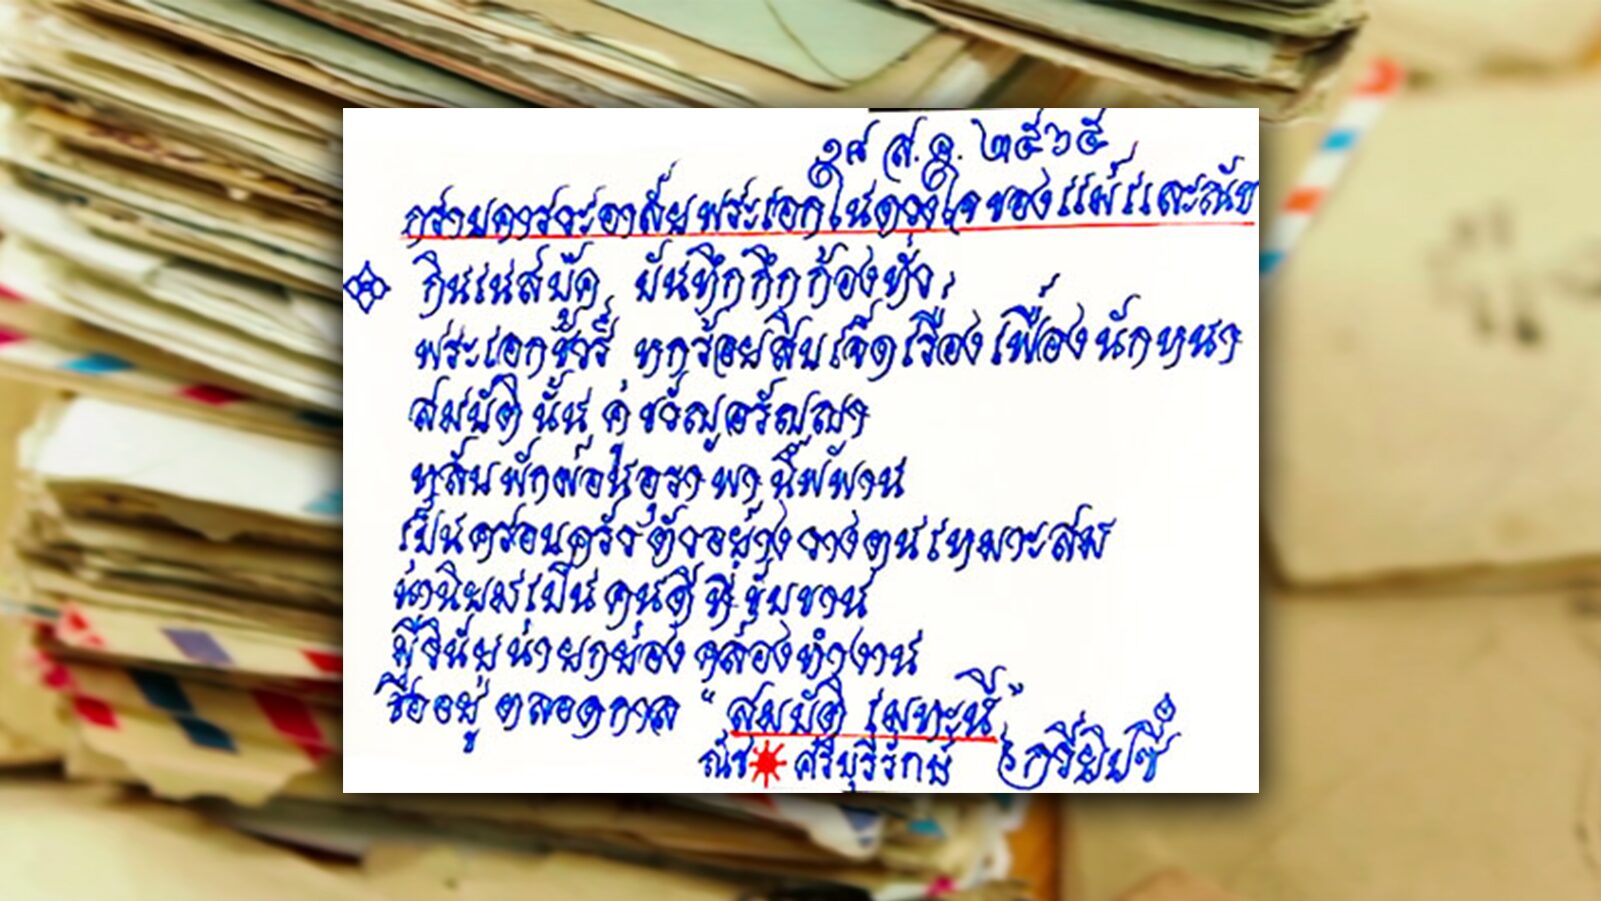 ๑๙ ส.ค. ๒๕๖๕
กราบคารวะอาลัยพระเอกในดวงใจของแม่และณัช
กินเนสบุ๊ค บันทึกกึกก้องทั่ว
พระเอกชัวร์ หกร้อยสิบเจ็ดเรื่องเฟื่องนักหนา
สมบัติ นั้น คู่ขวัญอรัญญา
หลับพักผ่อนอุรา พา
เป็นครอบครัวตัวอย่างวางตนเหมาะสม
น่านิยมเป็นคนดี ที่ขับขาน
มีวินัย น่ายกย่อง คล่องทำงาน
ชื่ออยู่ ตลอดกาล "สมบัติ เมทะนี"
ณัช ศรีบุรีรักษ์